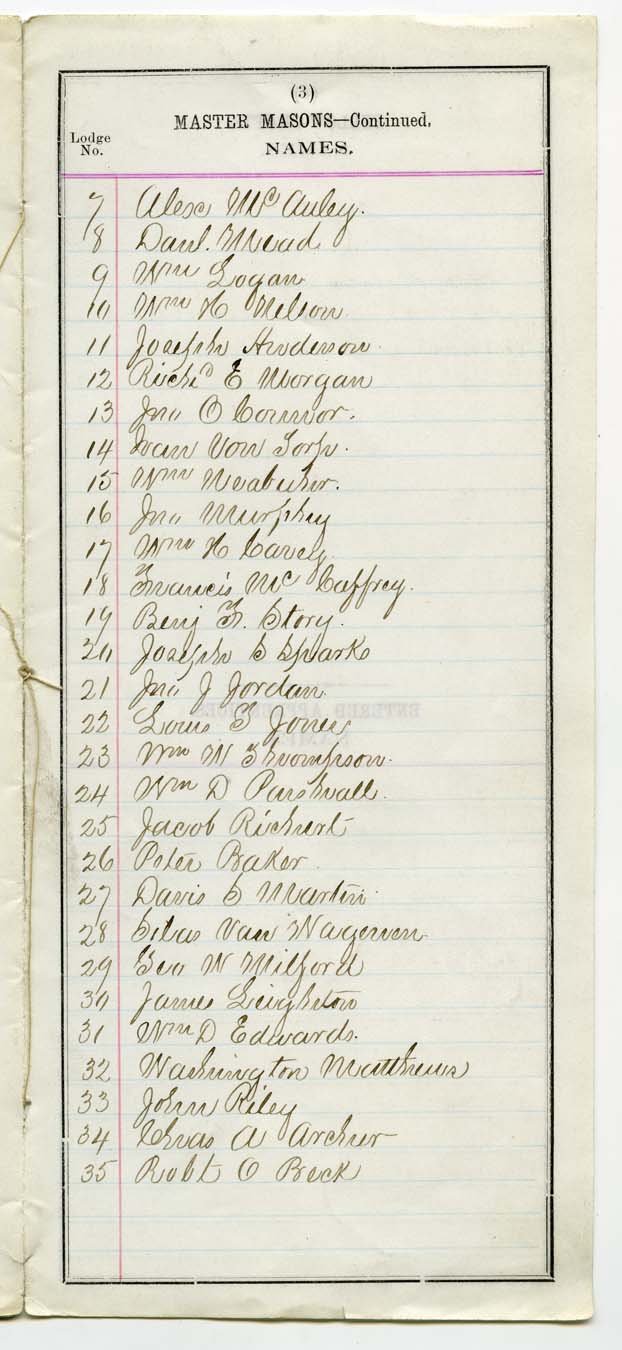 (3)
MASTER MASONS—Continued.
Lodge No.
NAMES.
7 Alex McAuley.
8 Danl. Mead
9 Wm Logan
10 Wm H Nelson
11 Joseph Anderson
12 Richd E Morgan
13 Jno O Connor.
14 Ivan Von
15 Wm
16 Jno Murphey
17 Wm H Carey
18 Francis McCaffrey.
19 Benj F. Story.
20 Joseph S Sparks
21 Jno J Jordan
22 Louis F Jones
23 Wm W Thompson.
24 Wm D Parshall.
25 Jacob Richert
26 Peter Baker
27 Davis S Martin
28 Silas Van Wagenen
29 Geo W Milford
30 James Leighton
31 Wm D Edwards.
32 Washington Matthews
33 John Riley
34 Chas A Archer
35 Robt O Beck